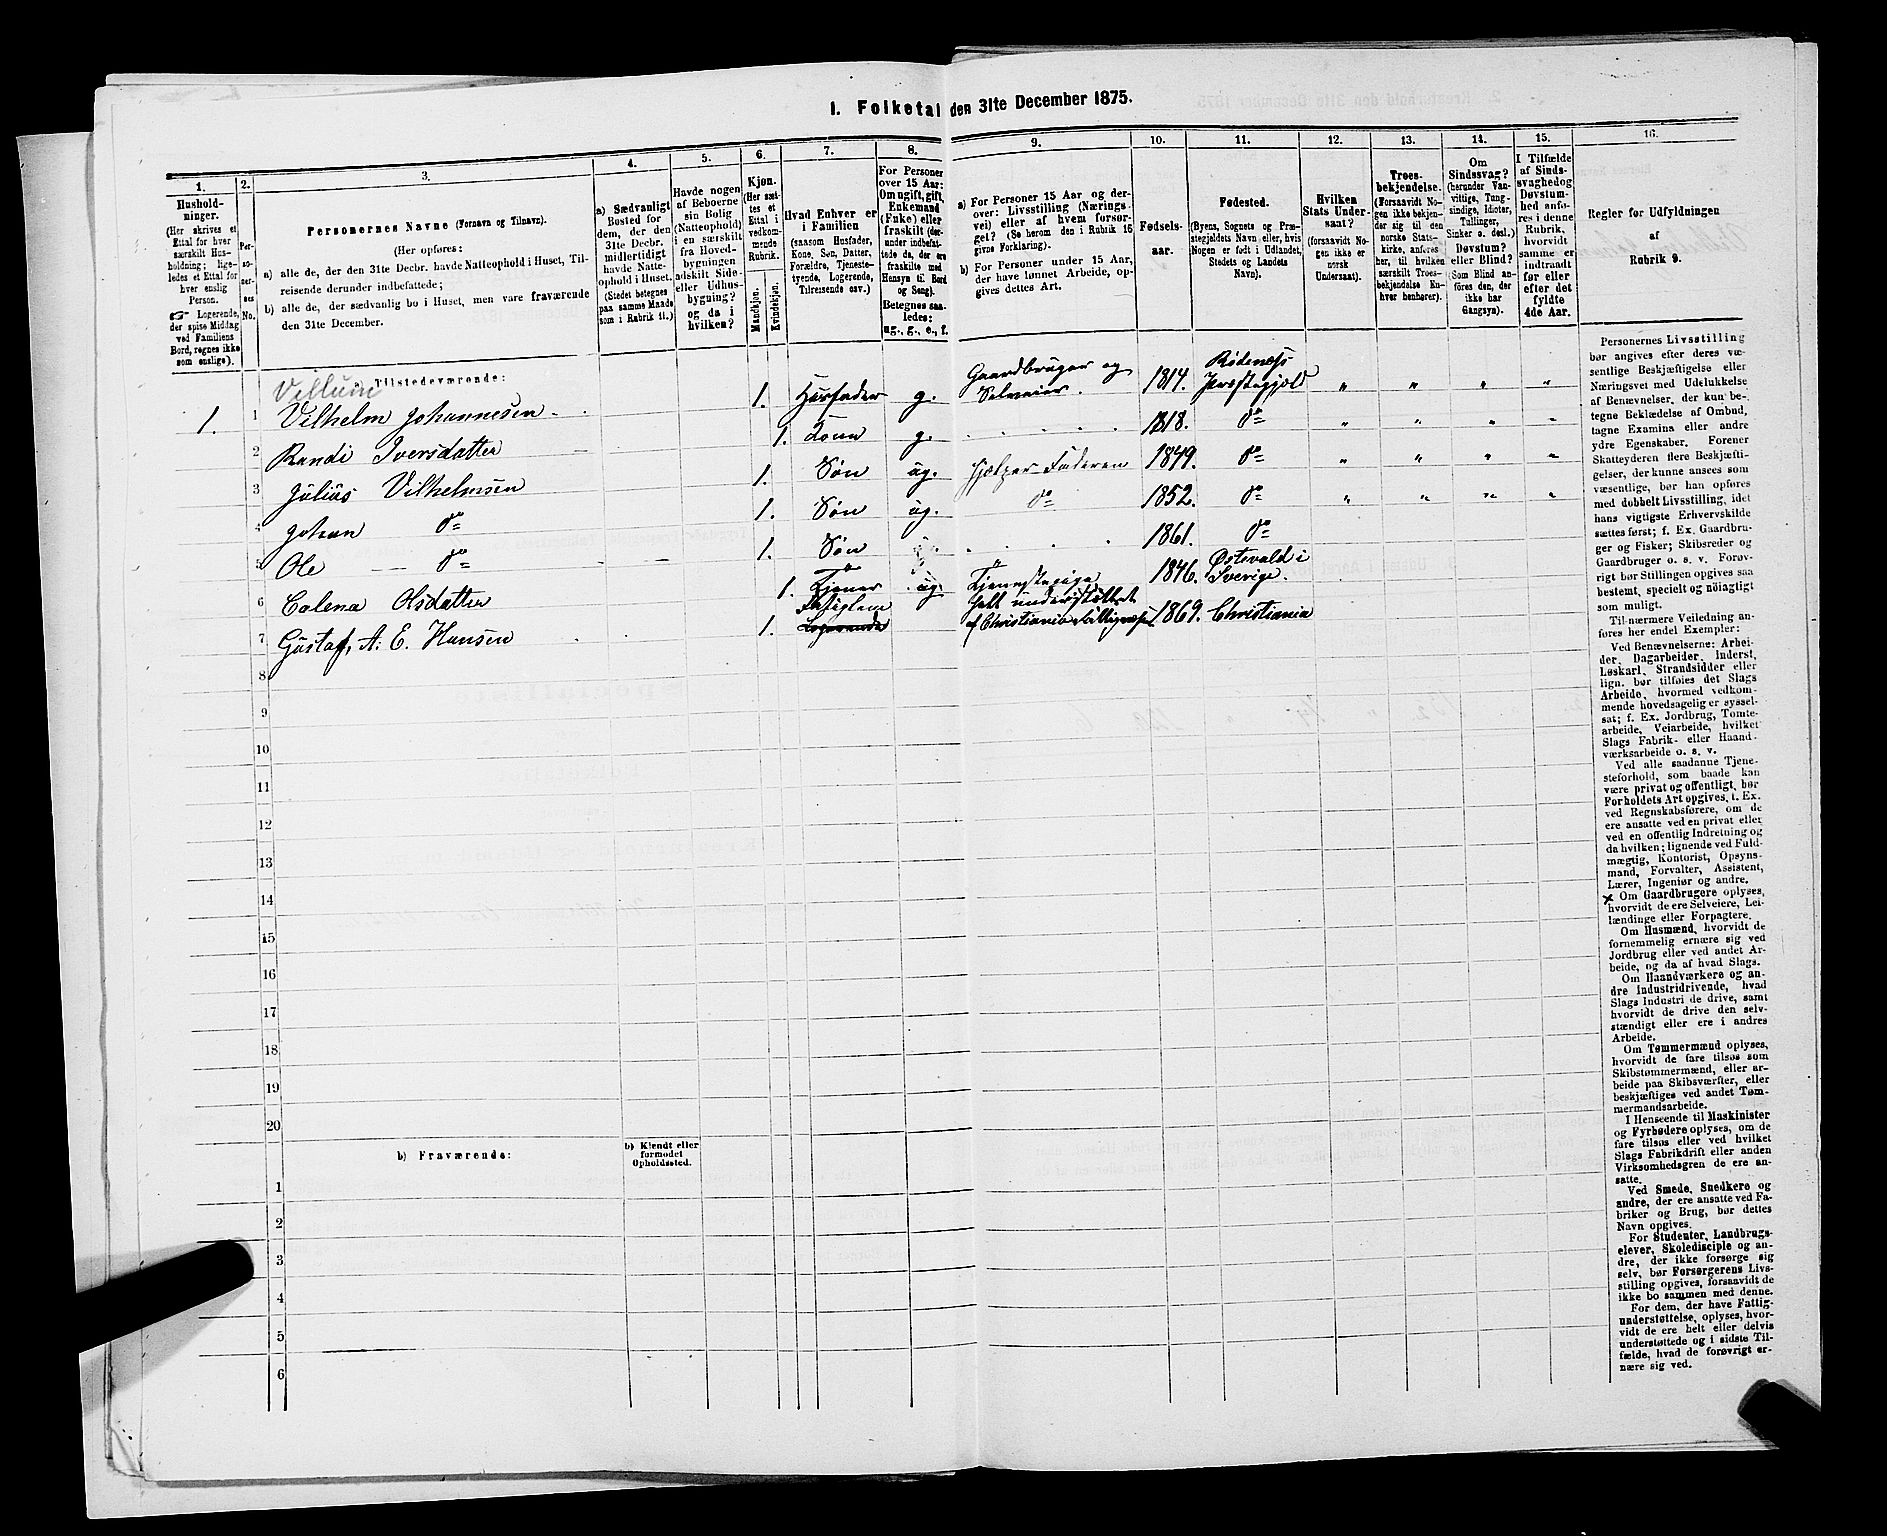 1. Folketal den 31te December 1875.
1.
2.
3.
4.
5.
6.
7.
8.
9.
10.
11.
12.
13.
14.
15.
16.
Hushold-
ninger.
(Her skrives et
Ettal for hver
særskilt Hus-
holdning; lige-
ledes et Ettal for
hver enslig
Person.
☞ Logerende,
der spise Middag
ved Familiens
Bord, regnes ikke
som enslige).
Per-
so-
ner-
nes
No.
Personernes Navne (Fornavn og Tilnavn).
(Her opføres:
a) alle de, der den 31te Decbr. havde Natteophold i Huset, Til-
reisende derunder indbefattede;
b) alle de, der sædvanlig bo i Huset, men vare fraværende
den 31te December.
a) Sædvanligt
Bosted for
dem, der den
31te Decbr.
midlertidigt
havde Natte-
ophold i Huset.
(Stedet betegnes
paa samme Maade
som i Rubrik 11.)
Havde nogen
af Beboerne
sin Bolig
(Natteophold)
i en særskilt
fra Hoved-
bygningen
adskilt Side-
eller Udhus-
bygning?
og da i
hvilken?
Kjøn.
(Her sæt-
tes et
Ettal i
vedkom-
mende
Rubrik.
Mandkjøn.
Kvindekjøn.
Hvad Enhver er
i Familien
(saasom Husfader,
Kone, Søn, Datter,
Forældre, Tjeneste-
tyende, Logerende,
Tilreisende osv.)
For Personer
over 15 Aar:
Om ugift, gift,
Enkemand
(Enke) eller
fraskilt (der-
under indbefat-
tede da, der ere
fraskilte med
Hensyn til Bord
og Seng).
Betegnes saa-
ledes:
ug., g., e., f.
a) For Personer 15 Aar og der-
over: Livsstilling (Nærings-
vei) eller af hvem forsør-
get? (Se herom den i Rubrik 16
givne Forklaring).
b) For Personer under 15 Aar,
der have lønnet Arbeide, op-
gives dettes Art.
Fødsels-
aar.
Fødested.
(Byens, Sognets og Præ-
stegjeldets Navn, eller, hvis
Nogen er født i Udlandet,
Stedets og Landets
Navn).
Hvilken
Stats Under-
saat?
(forsaavidt No-
gen ikke er
norsk
Undersaat).
Troes-
bekjendelse.
(Forsaavidt No-
gen ikke bekjen-
der sig til den
norske Stats-
kirke, anføres
her, til hvilken
særskilt Troes-
bekjendelse En-
hver henhører).
Om
Sindssvag?
(herunder Van-
vittige, Tung-
sindige, Idioter,
Tullinger,
Sinker o. desl.)
Døvstum?
eller Blind?
(Som Blind an-
føres den, der
ikke har
Gangsyn).
I Tilfælde
af Sinds-
svaghed og
Døvstum-
hed anfø-
res i denne
Rubrik,
hvorvidt
samme er
indtraadt
før eller
efter det
fyldte
4de Aar.
Regler for Udfyldningen
af
Rubrik 9.
a) Tilstedeværende:
Villum
1. 1 Vilhelm Johannesen 1. Husfader g. Gaardbruger og Selveier. 1814. Rödenæss Præstegjeld " " " "
2 Randi Iversdatter 1. Kone g. 1818. do " " " "
3 Julius Vilhelmsen 1. Søn ug. hjelper Faderen 1849. do " " " "
4 Johan do 1. Søn ug. do 1852. do " " " "
5 Ole do 1. Søn 1861. do
6 Calena Olsdatter 1. Tjener ug Tjenestepige 1846. Østevald i Sverige.
7 Gustaf. A. E. Hansen 1. Logerende helt understøttet af Christiania 1869. Christiania
8
9
10
11
12
13
14
15
16
17
18
19
20
b) Fraværende:
b) Kjendt eller
formodet
Opholdssted.
1
2
3
4
5
6
Personernes Livsstilling
bør angives efter deres væ-
sentlige Beskjæftigelse eller
Næringsvei med Udelukkelse
af Benævnelser, der kun be-
tegne Beklædelse af Ombud,
tagne Examina eller andre
ydre Egenskaber. Forener
Skatteyderen flere Beskjæfti-
gelser, der kunne ansees som
væsentlige, bør han opføres
med dobbelt Livsstilling, idet
hans vigtigste Erhvervskilde
sættes først; f. Ex. Gaardbru-
ger og Fisker; Skibsreder og
Gaardbruger o. s. v. Forøv-
rigt bør Stillingen opgives saa
bestemt, specielt og nøiagtigt
som muligt.
Til nærmere Veiledning an-
føres her endel Exempler:
Ved Benævnelserne: Arbei-
der, Dagarbeider, Inderst,
Løskarl, Strandsidder eller
lign. bør tilføies det Slags
Arbeide, hvormed vedkom-
mende hovedsagelig er syssel-
sat; f. Ex. Jordbrug, Tomte-
arbeide, Veiarbeide, hvilket
Slags Fabrik- eller Haand-
værksarbeide o. s. v.
Ved alle saadanne Tjene-
steforhold, som baade kan
være privat og offentligt, bør
Forholdets Art opgives, t. Ex.
ved Regnskabsførere, om de
ere ansatte ved en privat eller
ved en offentlig Indretning og
da hvilken; lignende ved Fuld-
mægtig, Kontorist, Opsyns-
mand, Forvalter, Assistent,
Lærer, Ingeniør og andre.
× Om Gaardbrugere oplyses,
hvorvidt de ere Selveiere, Lei-
lændinge eller Forpagtere.
Om Husmænd, hvorvidt de
fornemmelig ernære sig ved
Jordbrug eller ved andet Ar-
beide, og da af hvad Slags.
Om Haandværkere og an-
dre Industridrivende, hvad
Slags Industri de drive, samt
hvorvidt de drive den selv-
stændigt eller ere i andres
Arbeide.
Om Tømmermænd oplyses,
hvorvidt de fare tilsøs som
Skibstømmermænd, eller ar-
beide paa Skibsværfter, eller
beskjæftiges ved andet Tøm-
mermandsarbeide.
I Henseende til Maskinister
og Fyrbødere oplyses, om de
fare tilsøs eller ved hvilket
Slags Fabrikdrift eller anden
Virksomhedsgren de ere an-
satte.
Ved Smede, Snedkere og
andre, der ere ansatte ved Fa-
briker og Brug, bør dettes
Navn opgives.
For Studenter, Landbrugs-
elever, Skoledisciple og an-
dre, der ikke forsørge sig
selv, bør Forsørgerens Livs-
stilling opgives, forsaavidt de
ikke bo sammen med denne.
For dem, der have Fattig-
understøttelse, oplyses, hvor-
vidt de ere helt eller delvis
understøttede og i sidste Til-
fælde, hvad de forøvrigt er-
nære sig ved.